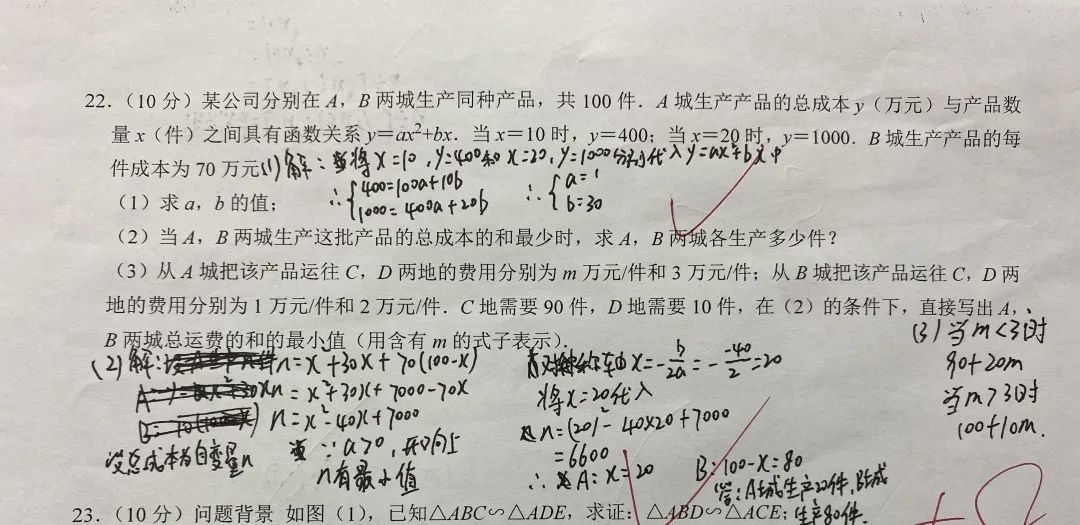 22.（10 分）某公司分别在 A，B 两城生产同种产品，共 100 件．A 城生产产品的总成本 y（万元）与产品数
量 x（件）之间具有函数关系 y＝ax²+bx．当 x＝10 时，y＝400；当 x＝20 时，y＝1000．B 城生产产品的每
件成本为 70 万元
(1) 解：将 x=10，y=400和 x=20，y=1000分别代入 y=ax²+bx中
∴{400=100a+10b
1000=400a+20b
∴{a=1
b=30
（1）求 a，b 的值；
（2）当 A，B 两城生产这批产品的总成本的和最少时，求 A，B 两城各生产多少件？
（3）从 A 城把该产品运往 C，D 两地的费用分别为 m 万元/件和 3 万元/件；从 B 城把该产品运往 C，D 两
地的费用分别为 1 万元/件和 2 万元/件．C 地需要 90 件，D 地需要 10 件，在（2）的条件下，直接写出 A，
B 两城总运费的和的最小值（用含有 m 的式子表示）．
(2) 解:
n=x²+30x+70(100-x)
n=x²+30x+7000-70x
n=x²-40x+7000
设总成本为自变量n
∵a>0，开口向上
n有最小值
对称轴 x=-b/2a=-(-40)/2=20
将x=20代入
n=(20)²-40×20+7000
=6600
∴A:x=20
B:100-x=80
答:A城生产20件,B城
生产80件.
(3) 当m<3时
90+20m
当m>3时
100+10m.
23.（10 分）问题背景 如图（1），已知△ABC∽△ADE，求证：△ABD∽△ACE；